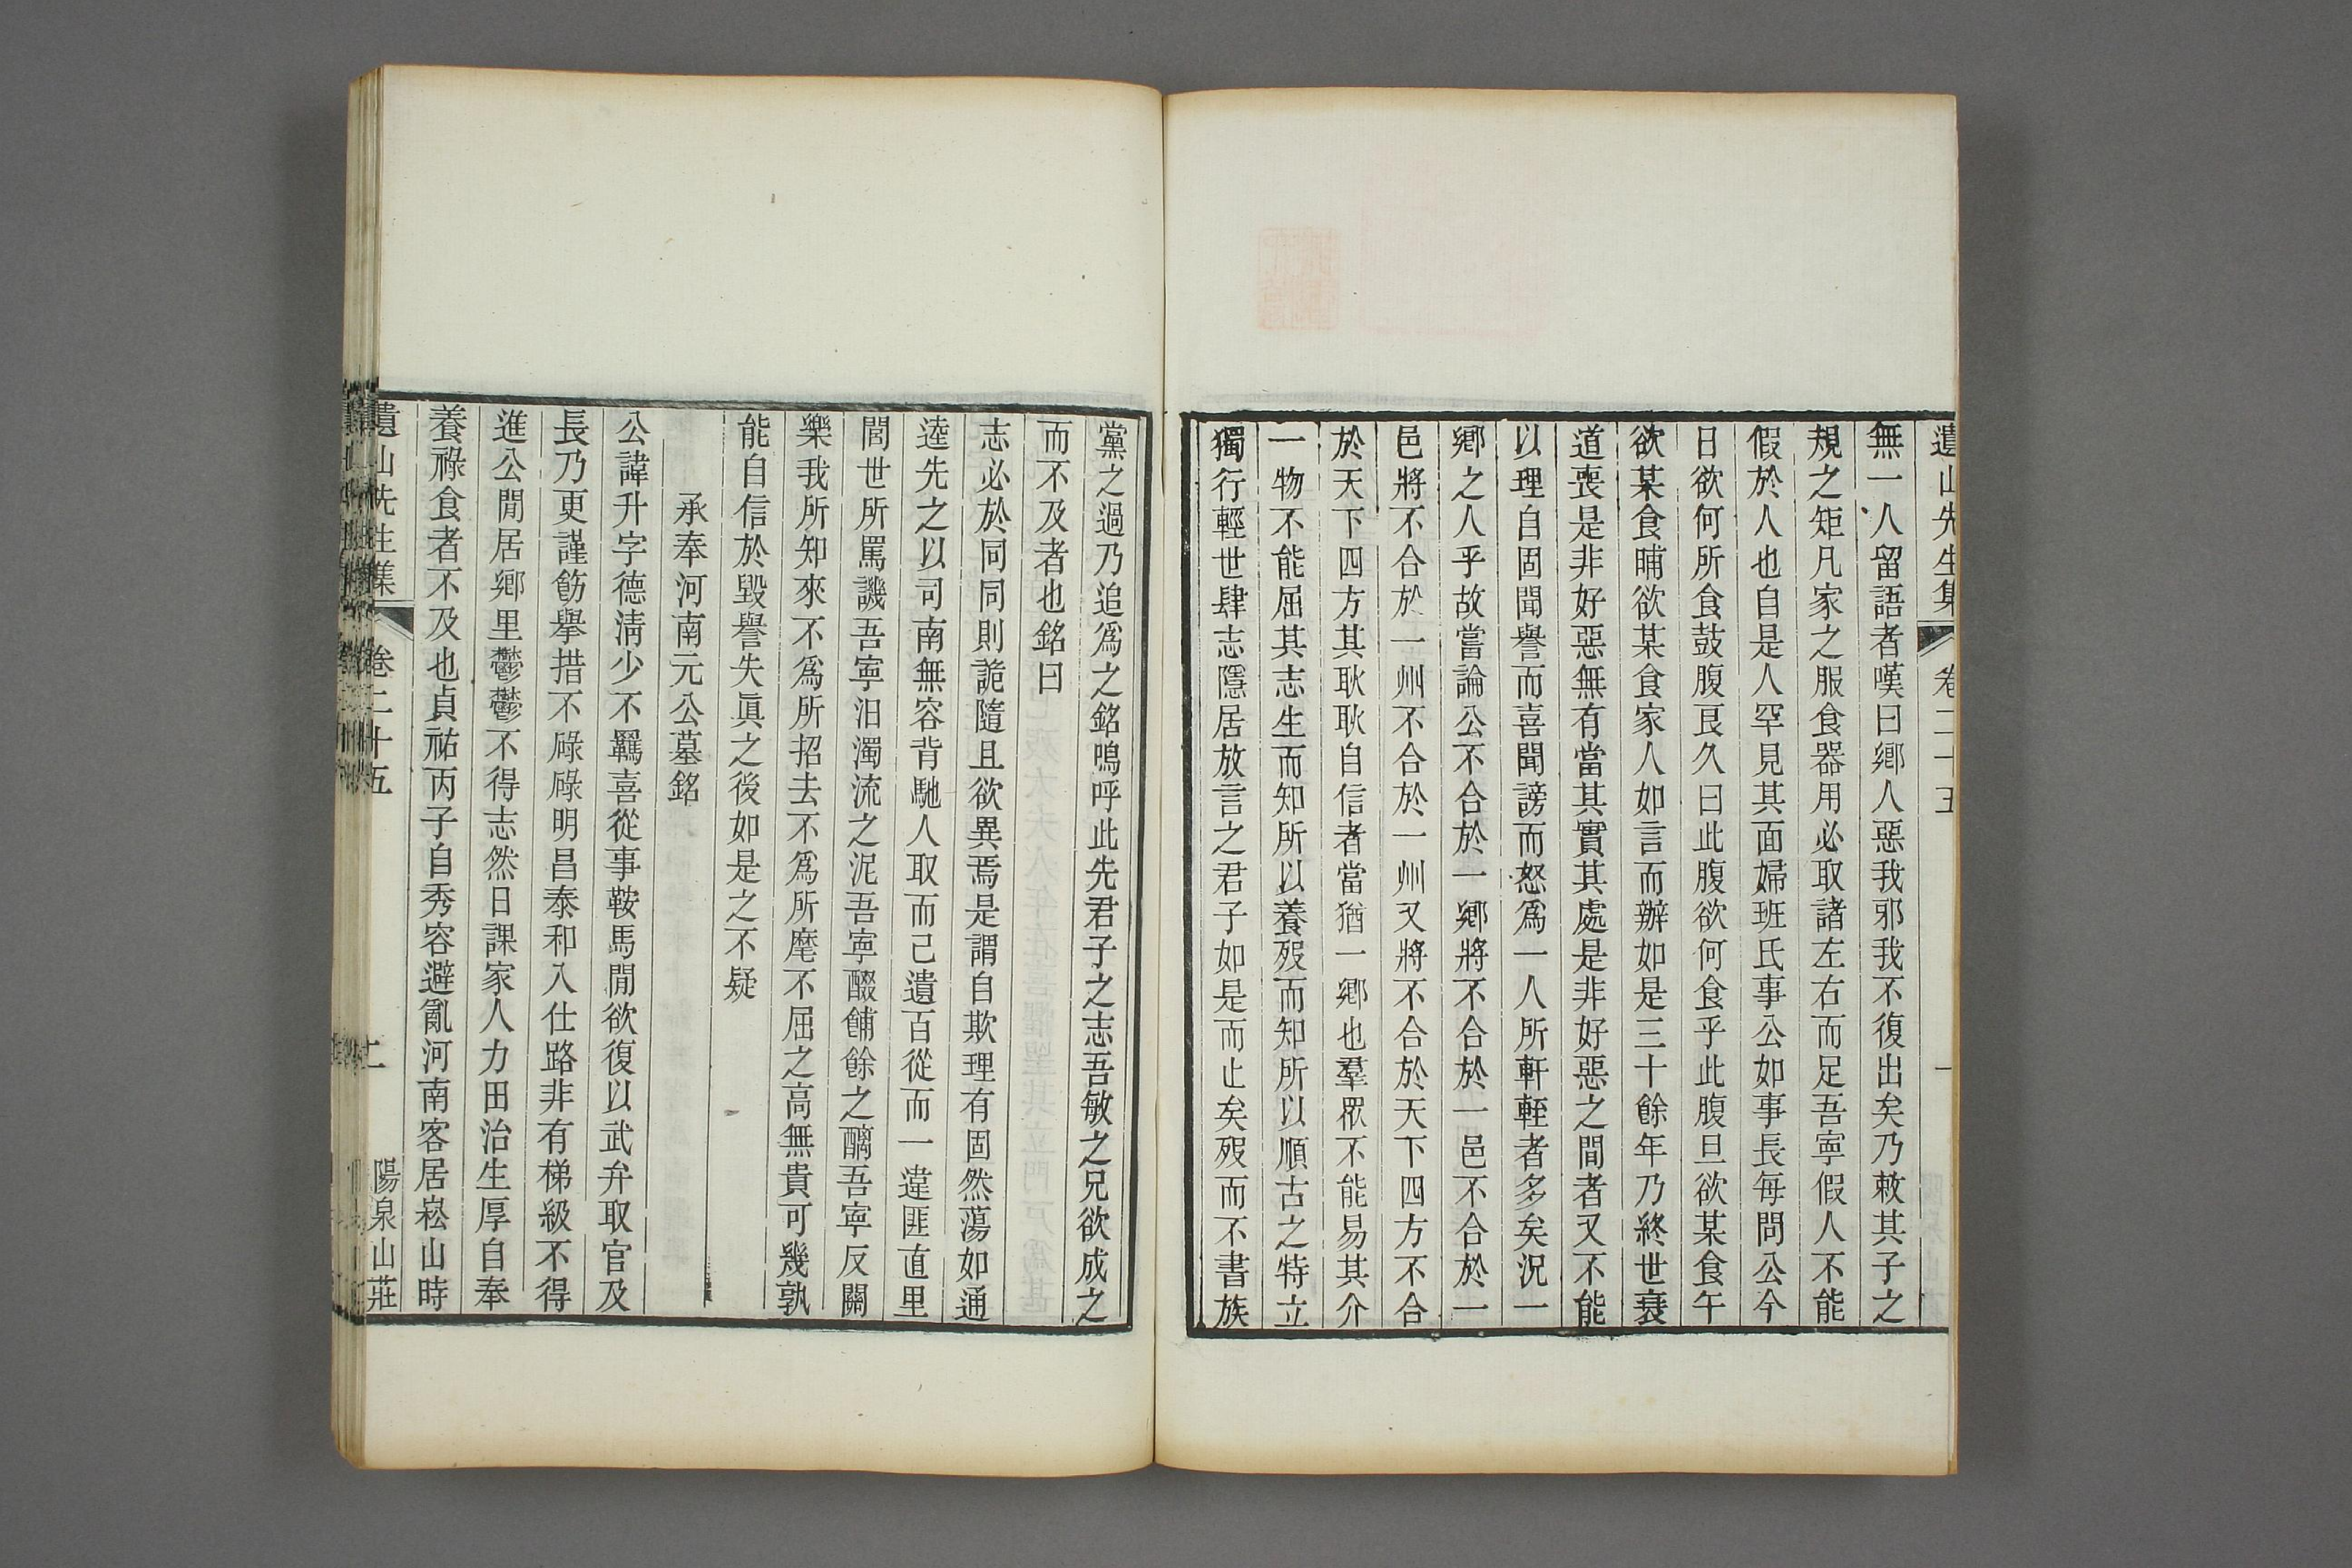 遺山先生集 卷二十五 一
無一人留語者嘆曰鄉人惡我邪我不復出矣乃敕其子之
規之矩凡家之服食器用必取諸左右而足吾寧假人不能
假於人也自是人罕見其面婦班氏事公如事長每問公今
日欲何所食鼓腹良久曰此腹欲何食乎此腹旦欲某食午
欲某食晡欲某食家人如言而辦如是三十餘年乃終世衰
道喪是非好惡無有當其實其處是非好惡之間者又不能
以理自固聞譽而喜聞謗而怒爲一人所軒輊者多矣況一
鄉之人乎故嘗論公不合於一鄉將不合於一邑不合於一
邑將不合於一州不合於一州又將不合於天下四方不合
於天下四方其耿耿自信者當猶一鄉也羣眾不能易其介
一物不能屈其志生而知所以養歿而知所以順古之特立
獨行輕世肆志隱居放言之君子如是而止矣歿而不書族
黨之過乃追爲之銘嗚呼此先君子之志吾敏之兄欲成之
而不及者也銘曰
志必於同同則詭隨且欲異焉是謂自欺理有固然蕩如通
逵先之以司南無容背馳人取而己遺百從而一違匪直里
閭世所罵譏吾寧汩濁流之泥吾寧醊餔餘之醨吾寧反關
樂我所知來不爲所招去不爲所麾不屈之高無貴可幾孰
能自信於毀譽失眞之後如是之不疑
承奉河南元公墓銘
公諱升字德淸少不羈喜從事鞍馬閒欲復以武弁取官及
長乃更謹飭擧措不碌碌明昌泰和入仕路非有梯級不得
進公閒居鄉里鬱鬱不得志然日課家人力田治生厚自奉
養祿食者不及也貞祐丙子自秀容避亂河南客居崧山時
遺山先生集 卷二十五 二 陽泉山莊